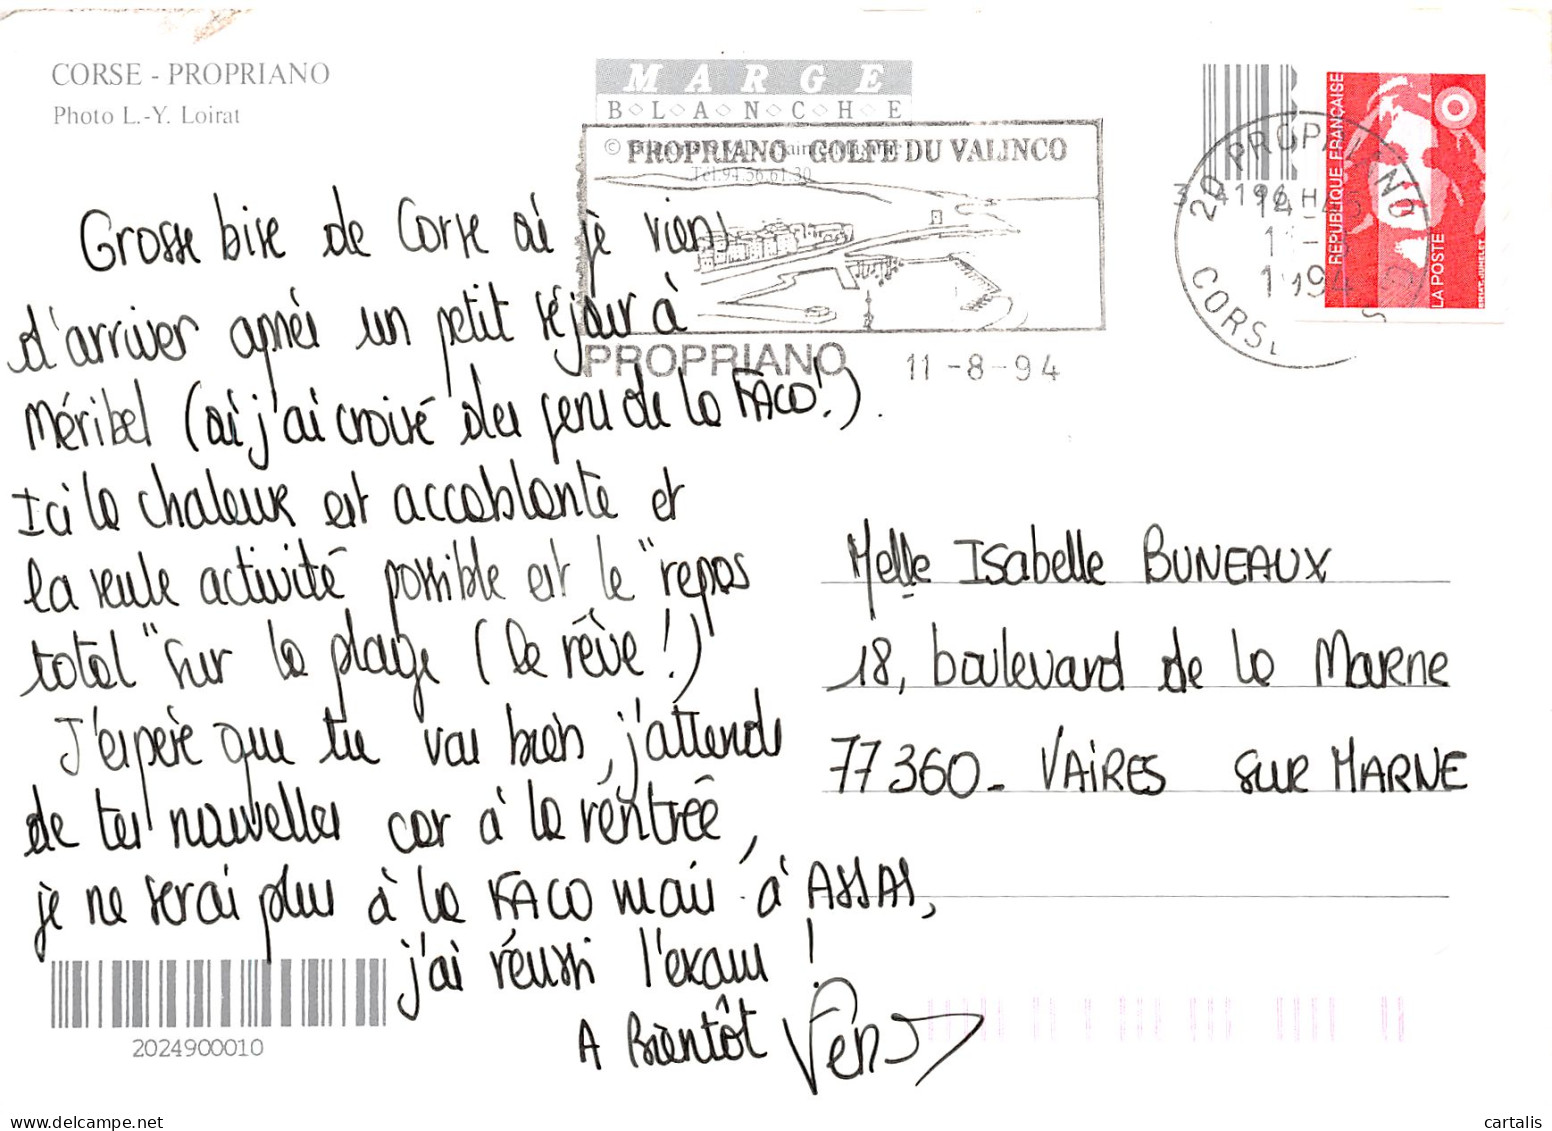 CORSE - PROPRIANO
Photo L.-Y. Loirat
MARGE
B◇L◇A◇N◇C◇H◇E
PROPRIANO GOLFE DU VALINCO
Tél. 94.56.61.30
PROPRIANO 11-8-94
20 PROPRIANO
1994
CORS
RÉPUBLIQUE FRANÇAISE
LA POSTE
Grosse bise de Corse où je viens
d'arriver après un petit séjour à
Méribel (où j'ai croisé des gens de la FACO!).
Ici la chaleur est accablante et
la seule activité possible est le "repos
total" sur la plage (le rêve!)
J'espère que tu vas bien, j'attends
de tes nouvelles car à la rentrée,
je ne serai plus à la FACO mais à ASSAS,
j'ai réussi l'exam !
A Bientôt
Melle Isabelle BUNEAUX
18, boulevard de la Marne
77360- VAIRES sur MARNE
2024900010
cartalis